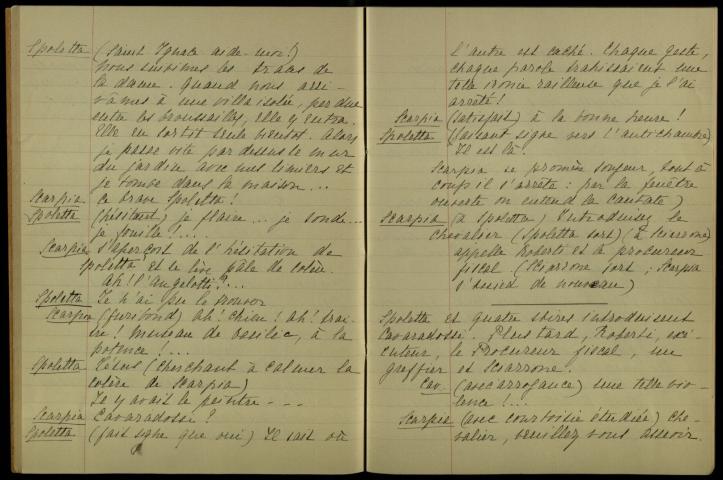 Spoletta (Saint Ignace aide-moi!)
nous suivîmes les traces de
la dame. Quand nous arri-
vâmes à une villa isolée, perdue
entre les broussailles, elle y entra.
Elle en sortit seule bientôt. Alors
je passe vite par dessus le mur
du jardin avec mes limiers et
je tombe dans la maison...
Scarpia Ce brave Spoletta!
Spoletta (hésitant) je flaire... je sonde...
je fouille!....
Scarpia s'aperçoit de l'hésitation de
Spoletta et se lève pâle de colère.
Ah! l'Angelotti?...
Spoletta Je n'ai pu le trouver
Scarpia (furibond) Ah! chien! ah! traî-
tre! Museau de basilic, à la
potence!....
Spoletta Jésus (cherchant à calmer la
colère de Scarpia)
Il y avait le peintre - - -
Scarpia Cavaradossi?
Spoletta (fait signe que oui) Il sait où
l'autre est caché. Chaque geste,
chaque parole trahissaient une
telle ironie railleuse que je l'ai
arrêté!
Scarpia (satisfait) à la bonne heure!
Spoletta (faisant signe vers l'antichambre)
Il est là.
Scarpia se promène songeur, tout à
coup il s'arrête: par la fenêtre
ouverte on entend la Cantate)
Scarpia (à Spoletta) Introduisez le
chevalier (Spoletta sort) (à Sciarrone)
appelle Roberti et le procureur
fiscal (Sciarrone sort; Scarpia
s'assied de nouveau)
Spoletta et quatre sbires introduisent
Cavaradossi. Plus tard, Roberti, exé-
cuteur, le Procureur fiscal, un
greffier et Sciarrone.
Cav. (avec arrogance) Une telle vio-
lence!...
Scarpia (avec courtoisie étudiée) Che-
valier, veuillez vous asseoir.